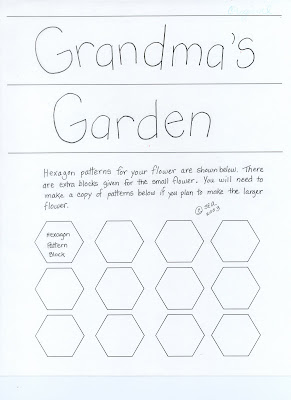 Grandma's
Garden
Hexagon patterns for your flower are shown below. There
are extra blocks given for the small flower. You will need to
make a copy of patterns below if you plan to make the larger
flower.
2003
Hexagon
Pattern
Block